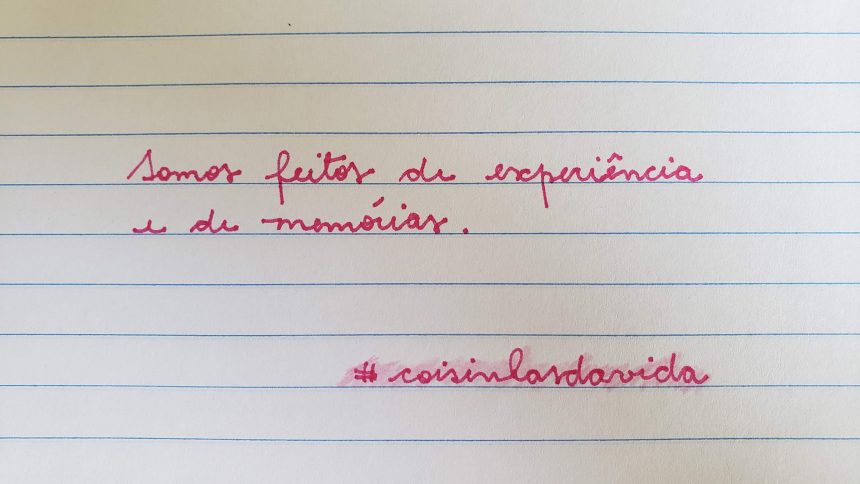 Somos feitos de experiência
e de memórias.
#coisinhasdavida